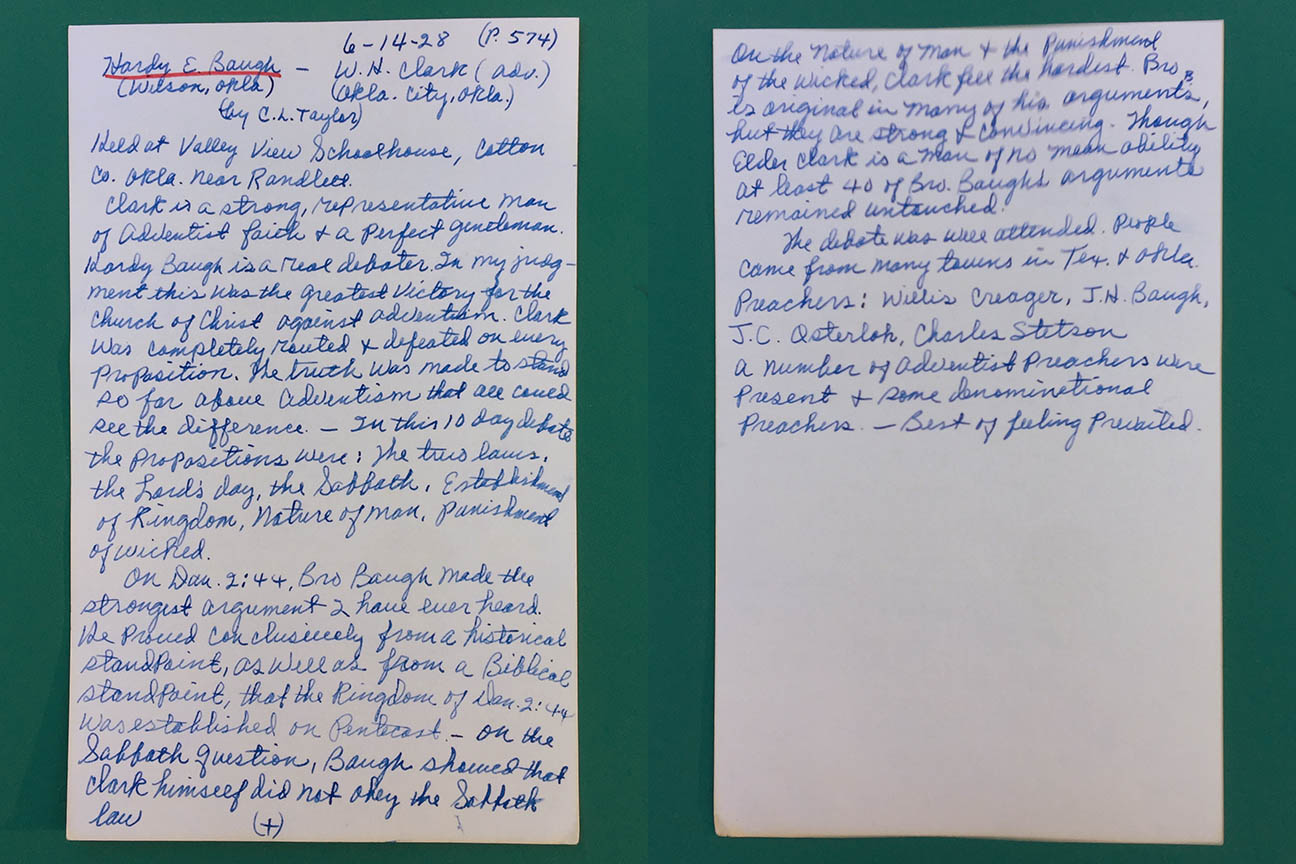 6-14-28 (P. 574)
Hardy E. Baugh - W. H. Clark (adv.)
(Wilson, Okla) (Okla. City, Okla.)
(by C.L. Taylor)
Held at Valley View Schoolhouse, Cotton
Co. Okla. near Randlett.
Clark is a strong, representative man
of Adventist faith & a perfect gentleman.
Hardy Baugh is a real debater. In my judg-
ment this was the greatest victory for the
church of Christ against adventism. Clark
was completely routed & defeated on every
proposition. The truth was made to stand
so far above Adventism that all could
see the difference. - In this 10 day debate
the propositions were: The two laws,
the Lord's day, the Sabbath, Establishment
of Kingdom, Nature of man, Punishment
of wicked.
On Dan. 2:44, Bro Baugh made the
strongest argument I have ever heard.
He proved conclusively from a historical
standpoint, as well as from a Biblical
standpoint, that the Kingdom of Dan. 2:44
was established on Pentecost. - On the
Sabbath question, Baugh showed that
Clark himself did not obey the Sabbath
law (+)
On the Nature of Man & the Punishment
of the wicked, Clark fell the hardest. Bro B
is original in many of his arguments,
but they are strong & convincing. Though
Elder Clark is a man of no mean ability
at least 40 of Bro. Baugh's arguments
remained untouched.
The debate was well attended. People
came from many towns in Tex. & Okla.
Preachers: Willis Creager, J.H. Baugh,
J.C. Osterloh, Charles Stetson
A number of Adventist Preachers were
present & some denominetional
Preachers. - Best of feeling prevailed.